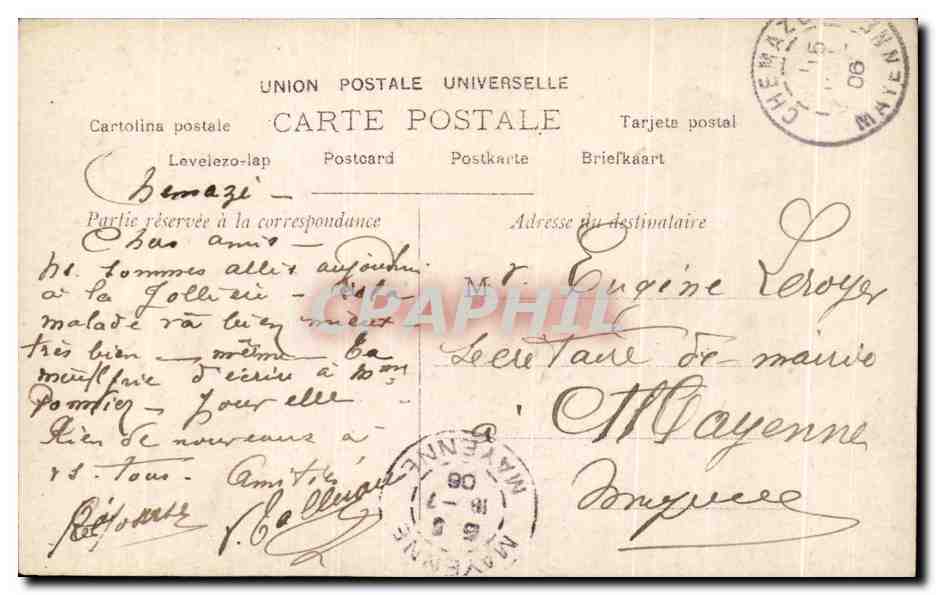 UNION POSTALE UNIVERSELLE
Cartolina postale CARTE POSTALE Tarjeta postal
Levelezo-lap Postcard Postkarte Briefkaart
Chemazé -
Partie réservée à la correspondance
Adresse du destinataire
Chers amis -
ns. sommes allés aujourdhui
à la Jollerie -
malade va bien mieux -
très bien - même
d'écrire à Mme
- pour elle -
Rien de nouveaux à
vs. tous. Amitiés
Mr. Eugène Leroyer
Secretaire de mairie
à Mayenne
Mayenne
CPAPHIL
CHEMAZE
MAYENNE
06
MAYENNE
MAYENNE
06